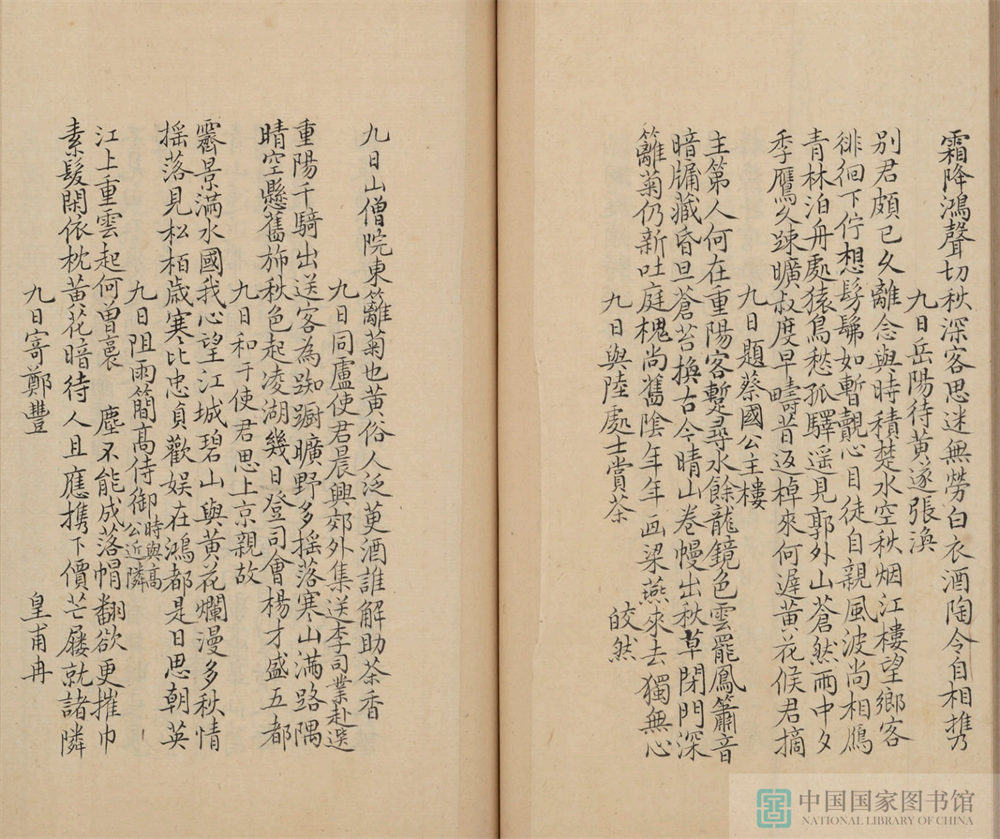 霜降鴻聲切秋深客思迷無勞白衣酒陶令自相攜
九日岳陽待黃遂張渙
別君頗已久離念與時積楚水空秋烟江樓望鄉客
徘徊下佇想髣髴如暫覿心目徒自親風波尚相鴈
青林泊舟處猿鳥愁孤驛遥見郭外山蒼然雨中夕
季鷹久踈曠叔度早疇昔返棹來何遲黃花候君摘
九日題蔡國公主樓
主第人何在重陽客暫尋水餘龍鏡色雲罷鳳簫音
暗牖藏昏旦蒼苔換古今晴山卷幔出秋草閉門深
籬菊仍新吐庭槐尚舊陰年年畫梁燕來去獨無心
九日與陸處士賞茶 皎然
九日山僧院東籬菊也黃俗人泛更酒誰解助茶香
九日同盧使君晨興郊外集送李司業赴選
重陽千騎出送客為踟躕曠野多摇落寒山滿路隅
晴空懸舊斾秋色起凌湖幾日登司會楊才盛五都
九日和于使君思上京親故
霽景滿水國我心望江城碧山與黃花爛漫多秋情
摇落見松栢歲寒比忠貞歡娱在鴻都是日思朝英
九日阻雨簡高侍御時與高公近隣
江上重雲起何曾裛 塵不能成落帽翻欲更摧巾
素髮閑依枕黃花暗待人且應携下價芒屩就諸隣
九日寄鄭豐 皇甫冉
中国国家图书馆
NATIONAL LIBRARY OF CHINA